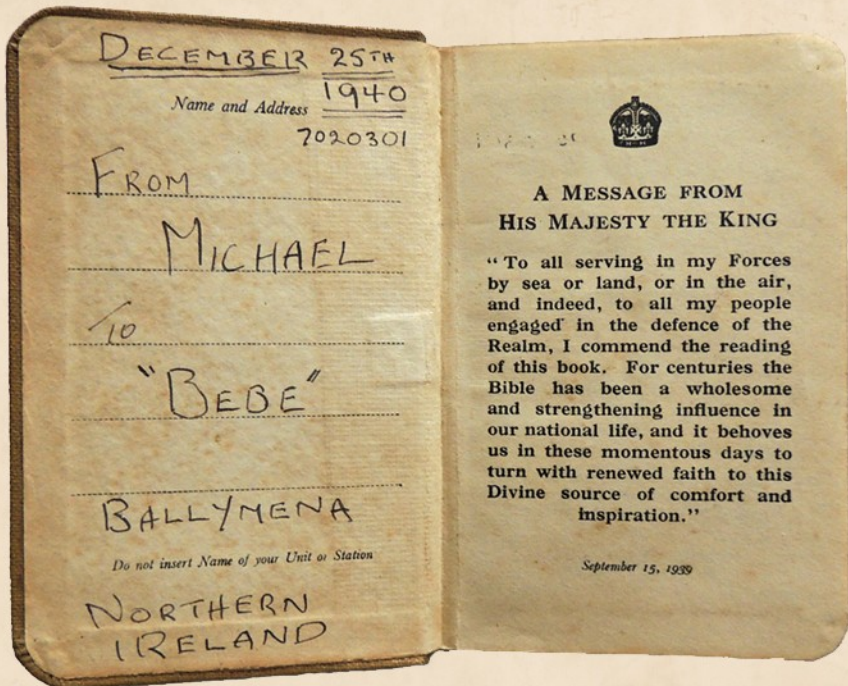 DECEMBER 25TH
1940
Name and Address
7020301
FROM
MICHAEL
TO
"BEBE"
BALLYMENA
Do not insert Name of your Unit or Station
NORTHERN
IRELAND
A MESSAGE FROM
HIS MAJESTY THE KING
“To all serving in my Forces
by sea or land, or in the air,
and indeed, to all my people
engaged in the defence of the
Realm, I commend the reading
of this book. For centuries the
Bible has been a wholesome
and strengthening influence in
our national life, and it behoves
us in these momentous days to
turn with renewed faith to this
Divine source of comfort and
inspiration.”
September 15, 1939